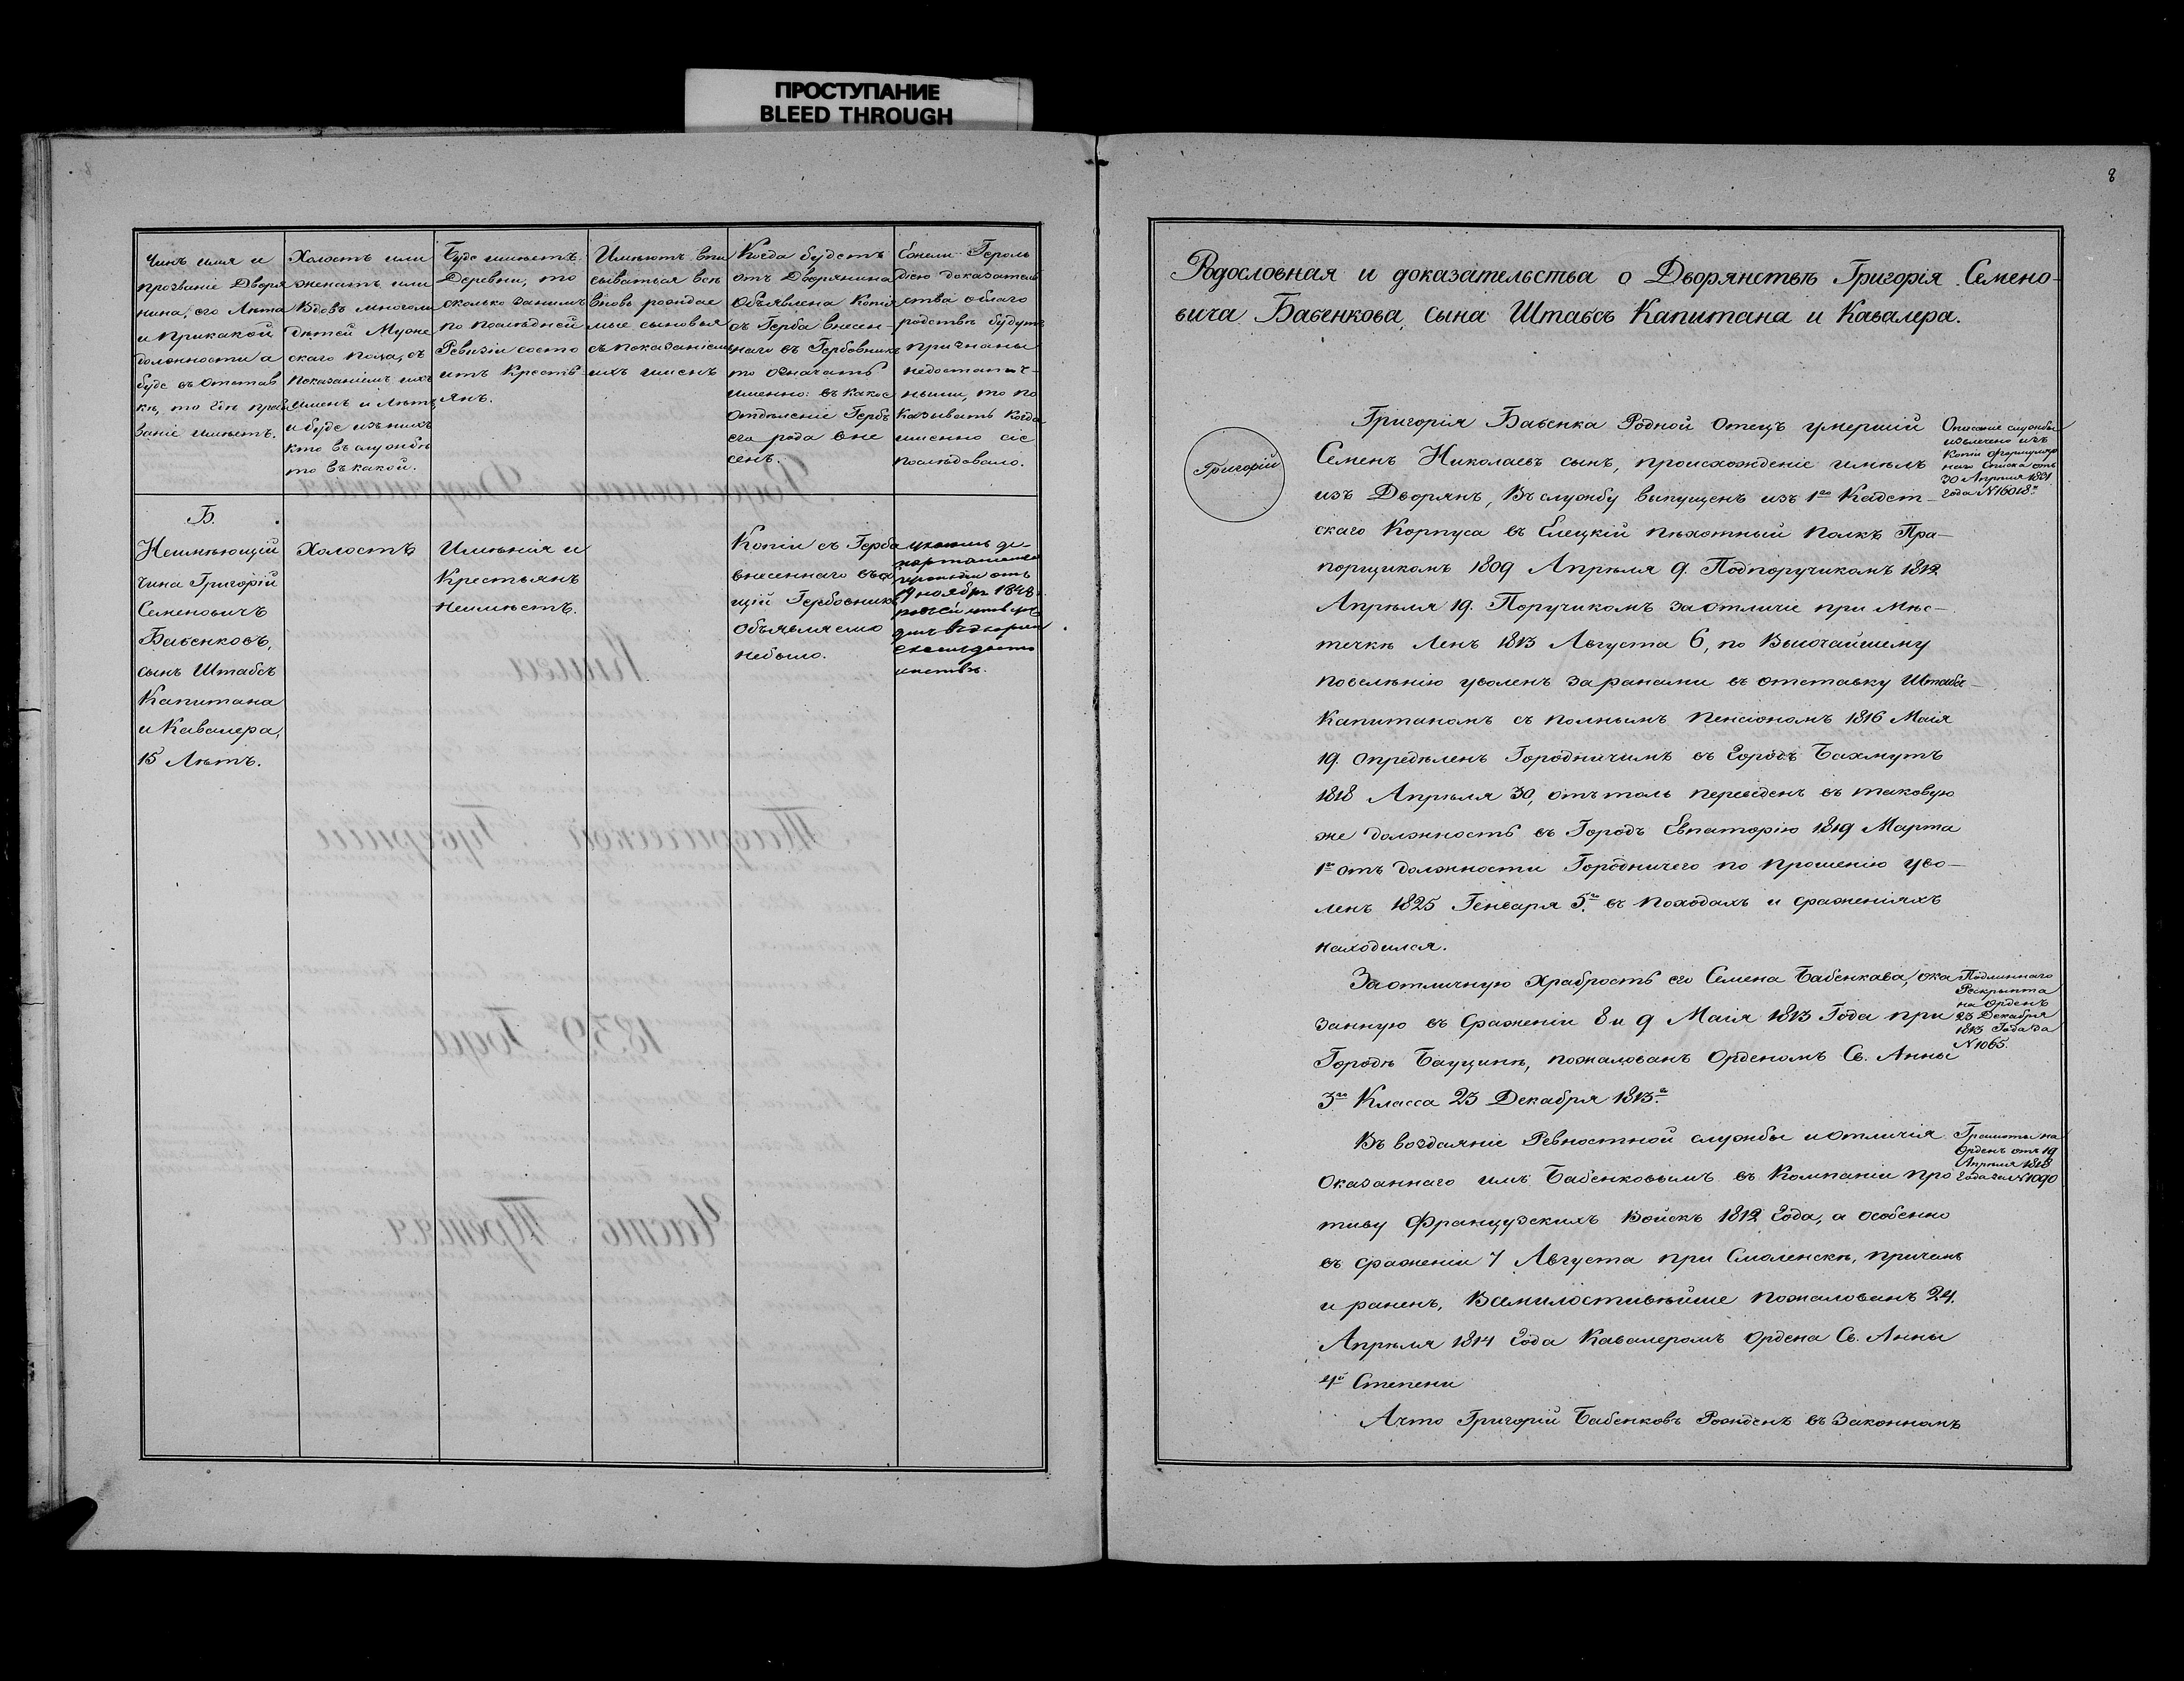 ПРОСТУПАНИЕ
BLEED THROUGH
8
Чинъ имя и
прозваніе Дворя
нина, его Лѣта
и Прикакой
должности а
буде въ отстав
кѣ, то гдѣ пребы
ваніе имѣетъ.
Холостъ или
женатъ или
Вдовъ многоли
дѣтей Муже
скаго пола, съ
показаніемъ ихъ
именъ и лѣтъ,
и буде изъ нихъ
кто въ службѣ
то въ какой.
Буде имѣетъ
Деревни, то
сколько занимъ
по послѣдней
Ревизіи состо
итъ Крестья
янъ.
Имѣютъ впи
сываться всѣ
вновь рождае
мые сыновья
съ показаніемъ
ихъ именъ
Когда будетъ
отъ Дворянина
Объявлена Копія
съ Герба внесен-
наго въ Гербовникъ
то означать
именно: въ какое
отдѣленіе Гербъ
его рода вне
сенъ.
Ежели Героль
діею доказатель
ства объ его
родствѣ будутъ
признаны
недостаточ-
ными, то по
казывать когда
именно сіе
послѣдовало.
Б.
Неимѣющій
чина Григорій
Семеновичъ
Бабенковъ,
сынъ Штабсъ
Капитана
и Кавалера,
15 Лѣтъ.
Холостъ
Имѣнія и
Крестьянъ
Неимѣетъ.
Копіи съ Герба
внесеннаго въ об
щій Гербовникъ
Объявляемо
небыло.
указомъ де
партамента
герольдіи отъ
19 ноября 1848
Родословная и доказательства о Дворянствѣ Григорія Семено-
вича Бабенкова, сына Штабсъ Капитана и Кавалера.
Григорій
Григорія Бабенка Родной отецъ умершій
Семенъ Николаевъ сынъ, происхожденіе имѣлъ
изъ Дворянъ, Въ службу выпущенъ изъ 1го Кадет-
скаго Корпуса въ Елецкій пѣхотный полкъ Пра-
порщикомъ 1809 Апрѣля 9. Подпоручикомъ 1812
Апрѣля 19. Поручикомъ за отличіе при Мѣс-
течкѣ Ленъ 1813 Августа 6, по Высочайшему
повелѣнію уволенъ за ранами въ отставку Штабсъ-
Капитаномъ съ полнымъ пенсіономъ 1816 Маія
19. опредѣленъ Городничимъ въ городъ Бахмутъ
1818 Апрѣля 30, отътоль переведенъ въ таковую
же должность въ Городъ Евпаторію 1819 Марта
1го отъ должности Городничего по прошенію уво-
ленъ 1825 Генваря 5го въ походахъ и сраженіяхъ
находился.
Описаніе службы
извлечено изъ
копіи формуляр
наго списка отъ
30 Апрѣля 1821
года N 16018го
За отличную храбрость его Семена Бабенкава, ока
занную въ сраженіи 8 и 9 Маія 1813 Года при
Городѣ Бауценѣ, пожалованъ Орденомъ Св. Анны
3го Класса 23 Декабря 1813го
Подлиннаго
Рескрипта
на Орденъ
23 Декабря
1813 Года за
N 1065.
Въ воздаяніе Ревностной службы и отличія
Оказаннаго имъ Бабенковымъ въ Компаніи про
тиву Французскихъ Войскъ 1812 года, а особенно
въ сраженіи 7 Августа при Смоленскѣ, причемъ
и раненъ, Всемилостивѣйше пожалованъ 24.
Апрѣля 1814 года Кавалеромъ Ордена Св. Анны
4й Степени
Грамоты на
Орденъ отъ 19
Апрѣля 1818
года за N 1090
А что Григорій Бабенковъ Рожденъ въ Законномъ